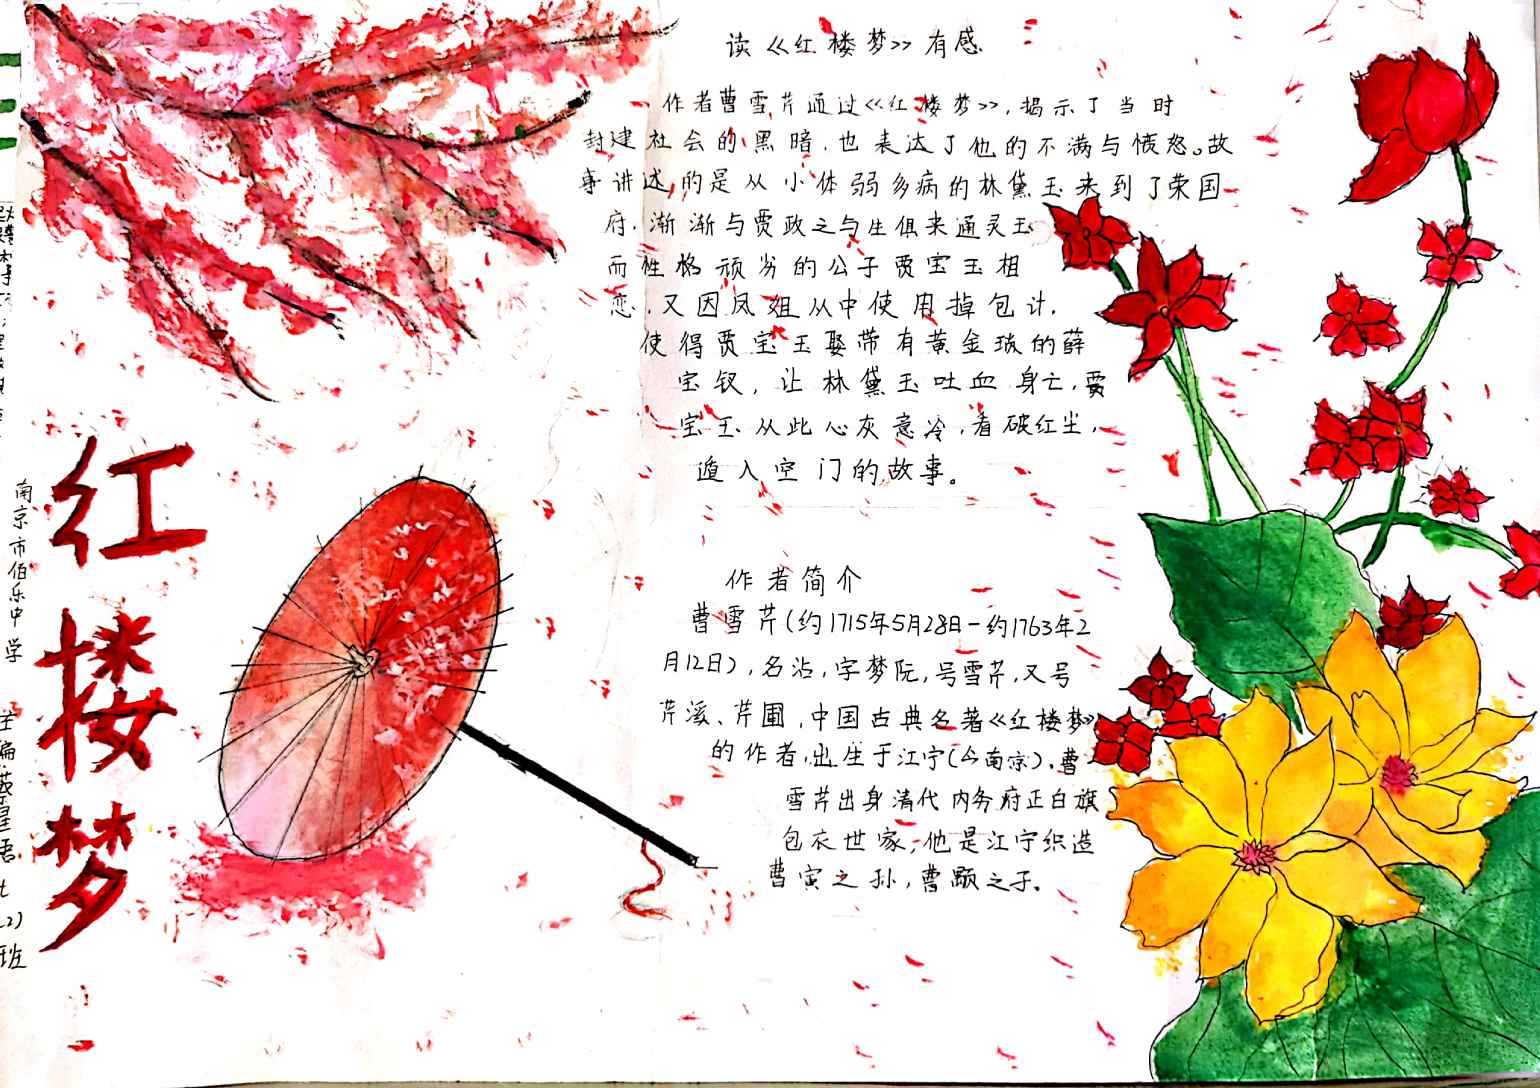 读《红楼梦》有感
作者曹雪芹通过《红楼梦》,揭示了当时
封建社会的黑暗,也表达了他的不满与愤怒。故
事讲述的是从小体弱多病的林黛玉来到了荣国
府,渐渐与贾政之与生俱来通灵玉
而性格顽劣的公子贾宝玉相
恋,又因凤姐从中使用掉包计,
使得贾宝玉娶带有黄金琐的薛
宝钗,让林黛玉吐血身亡,贾
宝玉从此心灰意冷,看破红尘,
遁入空门的故事。
作者简介
曹雪芹(约1715年5月28日-约1763年2
月12日),名沾,字梦阮,号雪芹,又号
芹溪、芹圃,中国古典名著《红楼梦》
的作者,出生于江宁(今南京),曹
雪芹出身清代内务府正白旗
包衣世家,他是江宁织造
曹寅之孙,曹颙之子。
红楼梦
南京市伯乐中学
主编
班